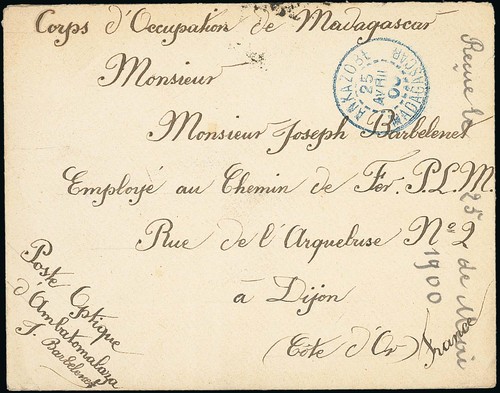 Corps d'Occupation de Madagascar
Monsieur
Monsieur Joseph Barbelenet
Employé au Chemin de Fer. P.L.M.
Rue de l'Arquebuse Nº 2
à Dijon
(Côte d'Or) France
Poste Optique
d'Ambatomalaza
J. Barbelenet
ANKAZOBE
25
AVRIL
00
MADAGASCAR
Reçue le
25 de Mai
1900